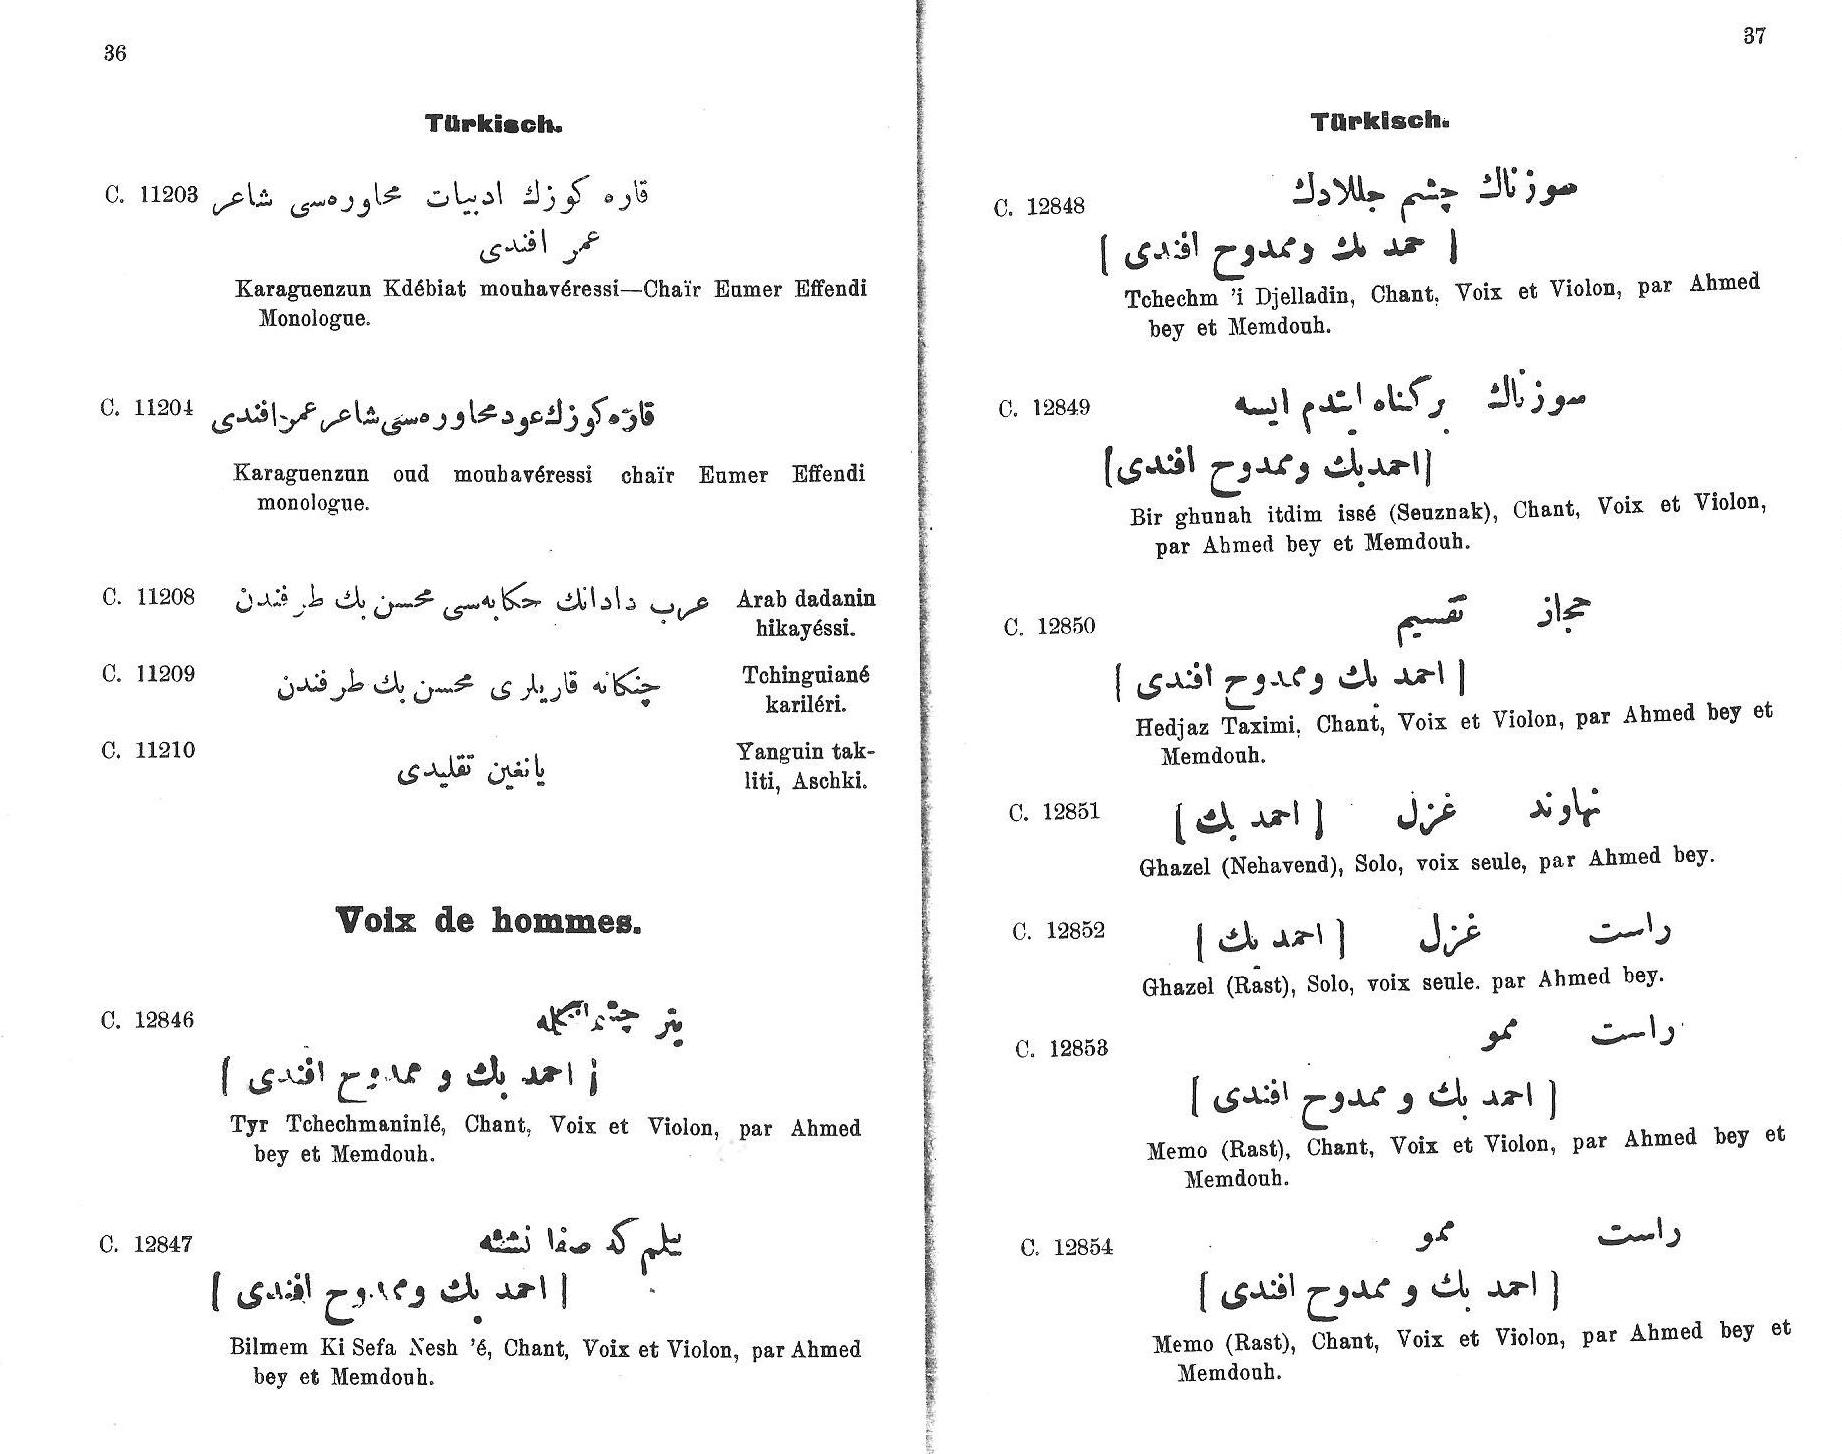 36
Türkisch.
C. 11203 قاره كوزك ادبيات محاوره‌سی شاعر
عمر افندی
Karaguenzun Kdébiat mouhavéressi—Chaïr Eumer Effendi
Monologue.
C. 11204 قاره كوزك عود محاوره‌سی شاعر عمر افندی
Karaguenzun oud mouhavéressi chaïr Eumer Effendi
monologue.
C. 11208 عرب دادانك حكايه‌سی محسن بك طرفندن Arab dadanin
hikayéssi.
C. 11209 چنكانه قاريلری محسن بك طرفندن Tchinguiané
kariléri.
C. 11210 يانغين تقليدی Yanguin tak-
liti, Aschki.
Voix de hommes.
C. 12846 تير
[ احمد بك و ممدوح افندی ]
Tyr Tchechmaninlé, Chant, Voix et Violon, par Ahmed
bey et Memdouh.
C. 12847 بيلم كه صفا نشئه
[ احمد بك وممدوح افندی ]
Bilmem Ki Sefa Nesh 'é, Chant, Voix et Violon, par Ahmed
bey et Memdouh.
37
Türkisch.
C. 12848 سوزناك چشم جللادك
[ احمد بك وممدوح افندی ]
Tchechm 'i Djelladin, Chant, Voix et Violon, par Ahmed
bey et Memdouh.
C. 12849 سوزناك بر كناه ايتدم ايسه
[احمد بك وممدوح افندی]
Bir ghunah itdim issé (Seuznak), Chant, Voix et Violon,
par Ahmed bey et Memdouh.
C. 12850 حجاز تقسيم
[ احمد بك وممدوح افندی ]
Hedjaz Taximi, Chant, Voix et Violon, par Ahmed bey et
Memdouh.
C. 12851 نهاوند غزل [ احمد بك ]
Ghazel (Nehavend), Solo, voix seule, par Ahmed bey.
C. 12852 راست غزل [ احمد بك ]
Ghazel (Rast), Solo, voix seule. par Ahmed bey.
C. 12853 راست ممو
[ احمد بك و ممدوح افندی ]
Memo (Rast), Chant, Voix et Violon, par Ahmed bey et
Memdouh.
C. 12854 راست ممو
[ احمد بك و ممدوح افندی ]
Memo (Rast), Chant, Voix et Violon, par Ahmed bey et
Memdouh.